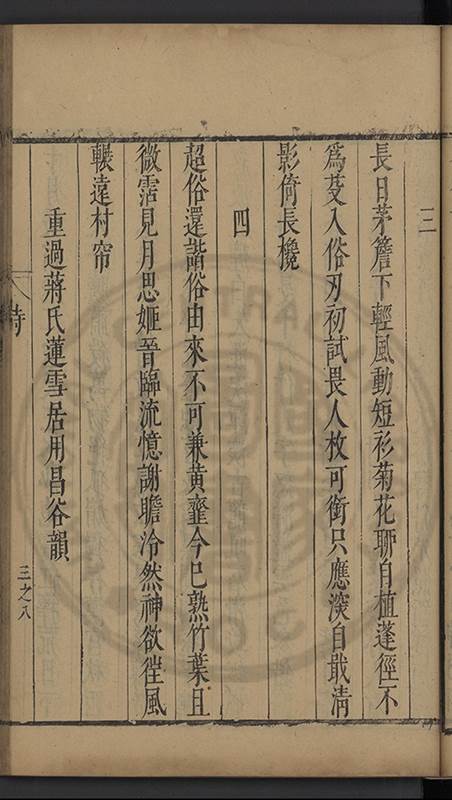 三
長日茅簷下輕風動短衫菊花聊自植蓬徑不
為芟入俗刃初試畏人枚可銜只應深自戢清
影倚長欃
四
超俗還諧俗由來不可兼黄虀今巳熟竹葉且
微霑見月思姬晉臨流憶謝瞻泠然神欲徃風
輾遠村帘
重過蔣氏蓮雪居用昌谷韻
詩
三之八